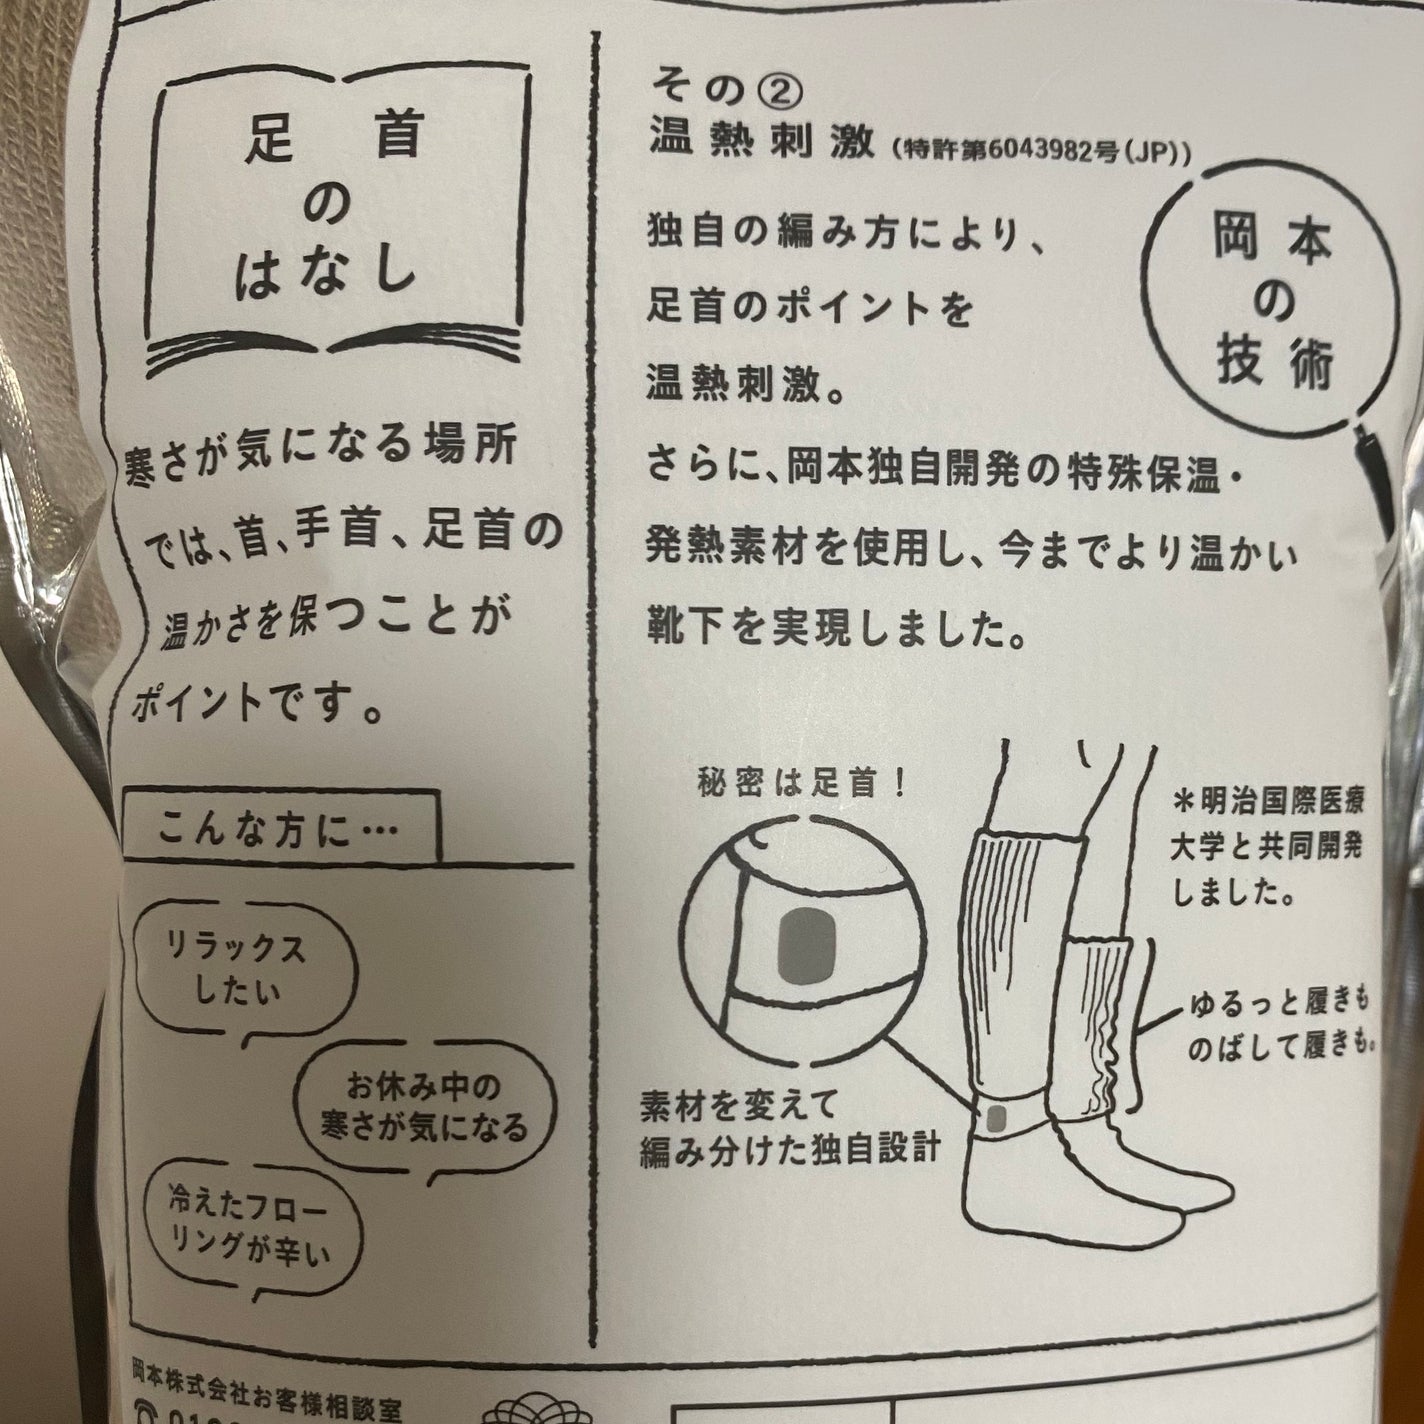 足首
の
はなし
寒さが気になる場所
では、首、手首、足首の
温かさを保つことが
ポイントです。
こんな方に…
リラックス
したい
お休み中の
寒さが気になる
冷えたフロー
リングが辛い
その②
温熱刺激(特許第6043982号(JP))
岡本
の
技術
独自の編み方により、
足首のポイントを
温熱刺激。
さらに、岡本独自開発の特殊保温・
発熱素材を使用し、今までより温かい
靴下を実現しました。
秘密は足首!
素材を変えて
編み分けた独自設計
*明治国際医療
大学と共同開発
しました。
ゆるっと履きも
のばして履きも。
岡本株式会社お客様相談室